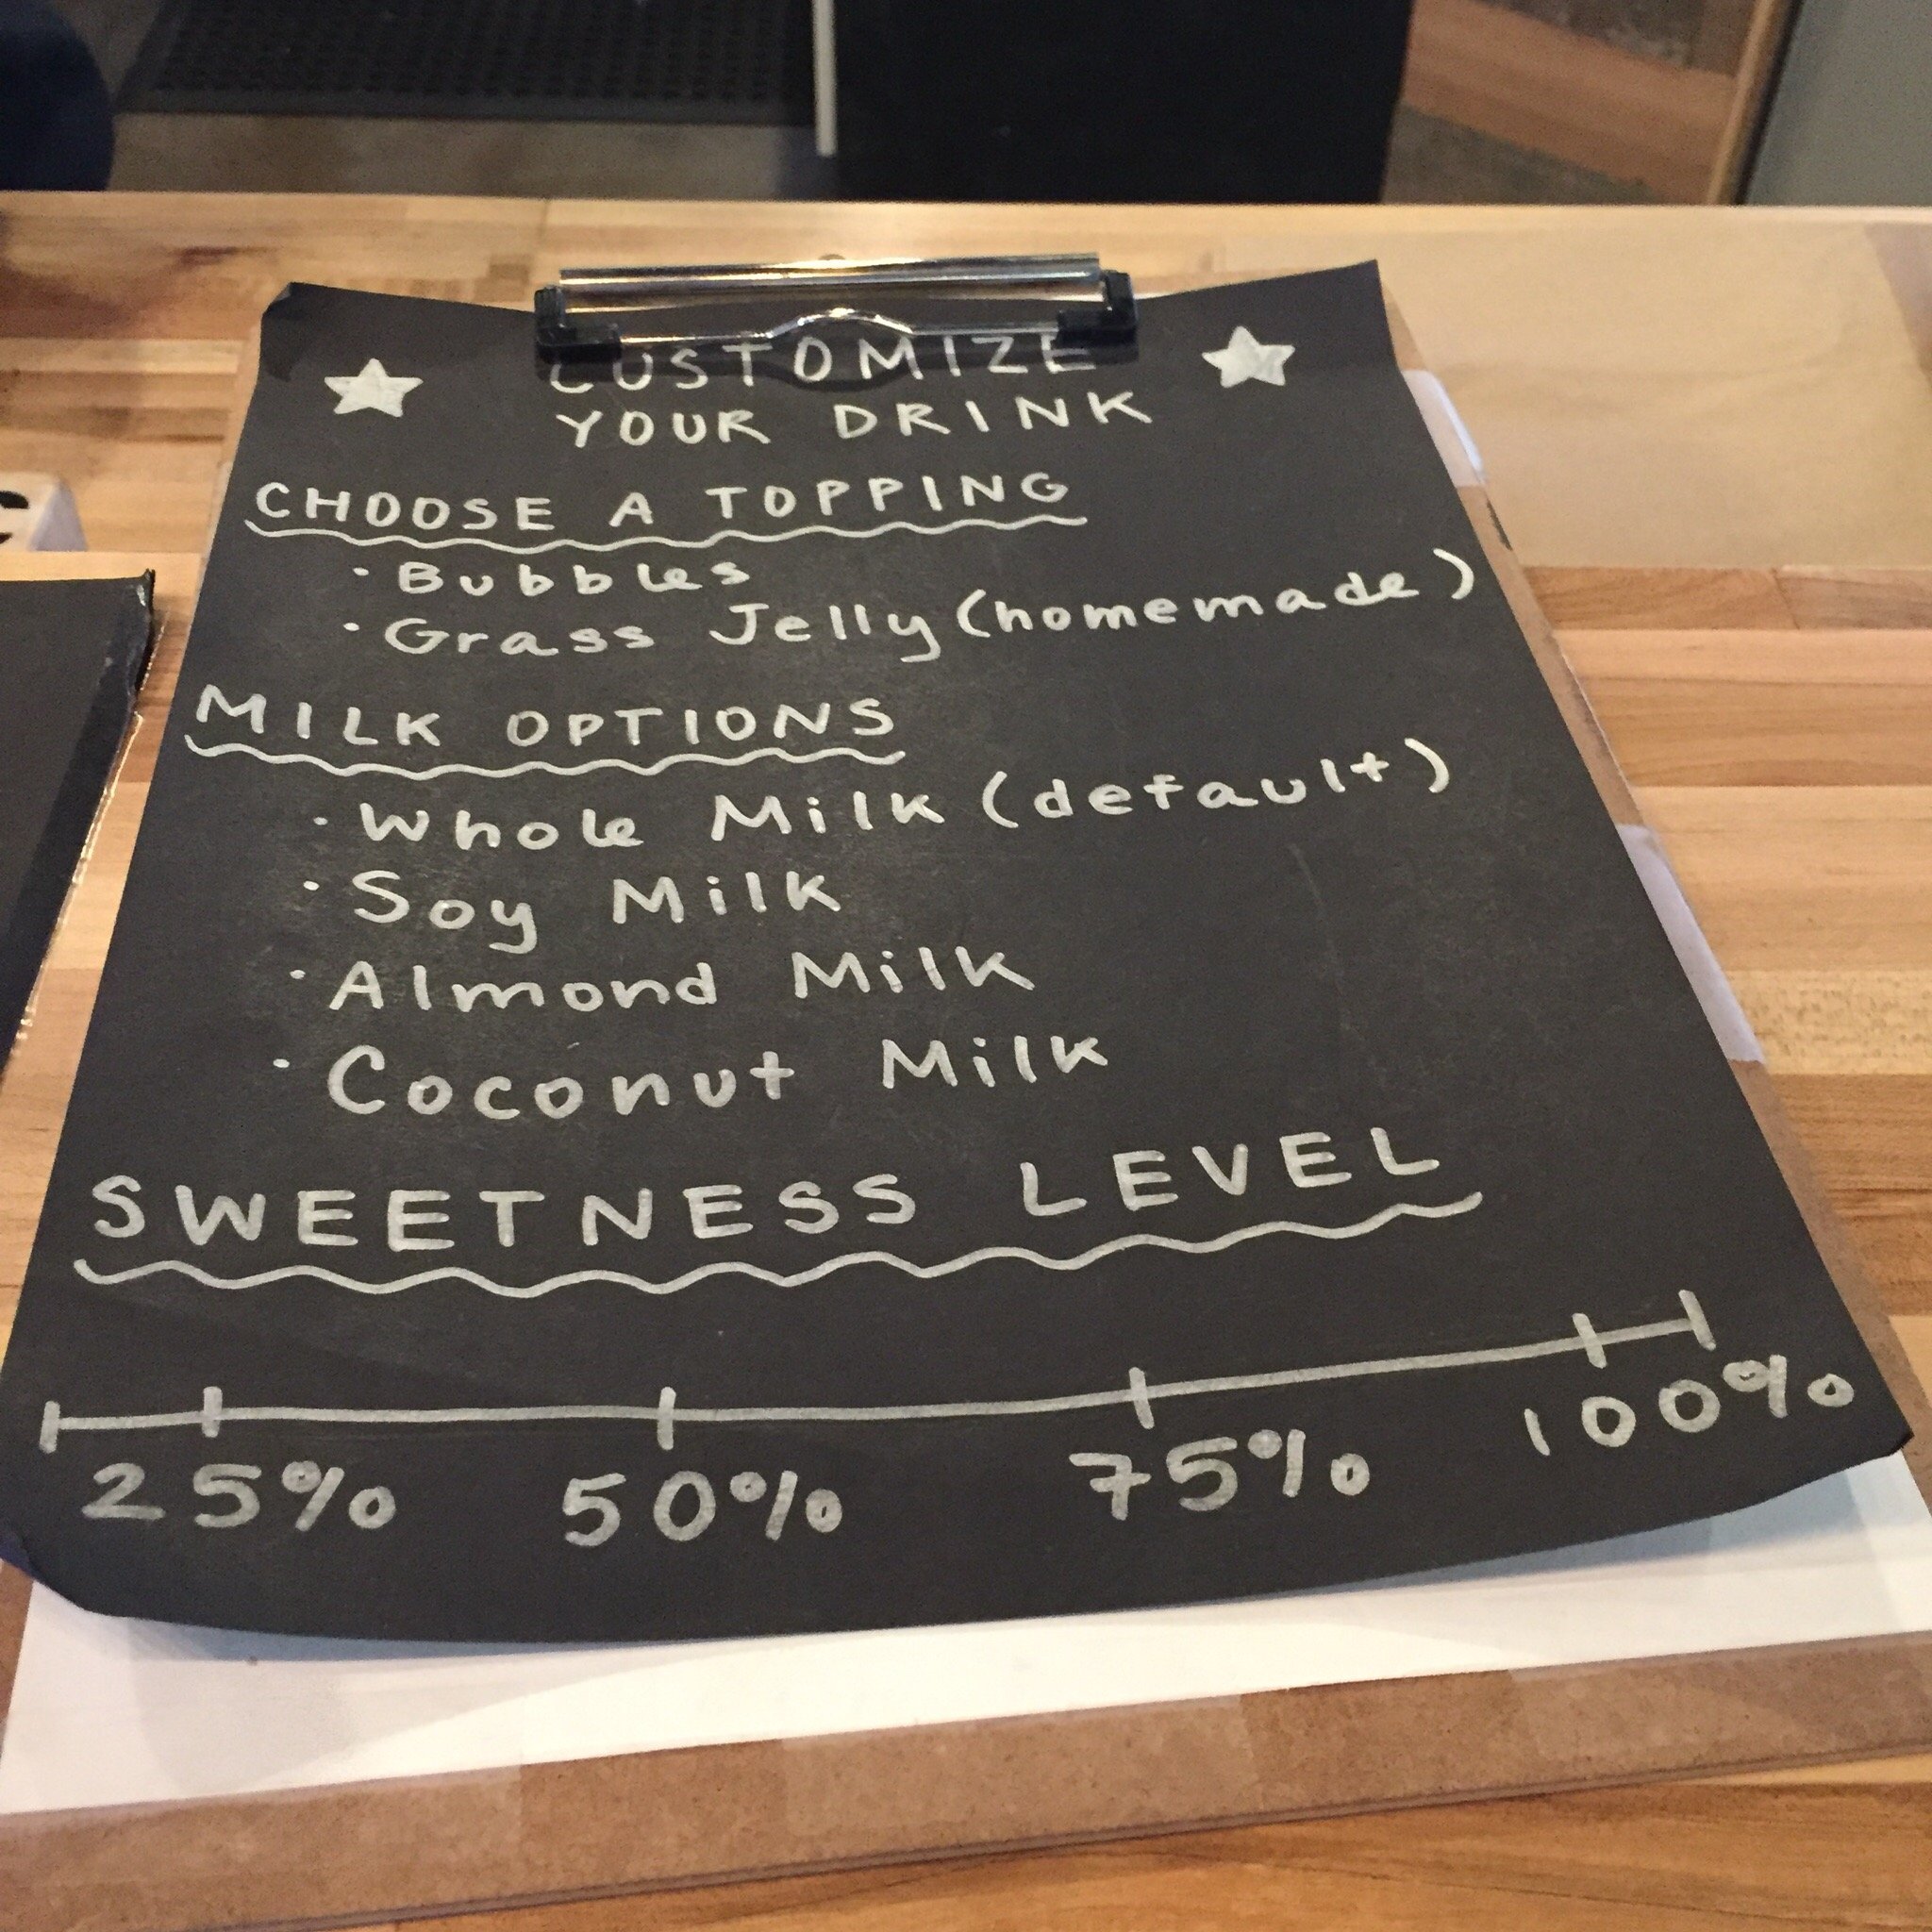 CUSTOMIZE
YOUR DRINK
CHOOSE A TOPPING
· Bubbles
· Grass Jelly (homemade)
MILK OPTIONS
· Whole Milk (default)
· Soy Milk
· Almond Milk
· Coconut Milk
SWEETNESS LEVEL
25% 50% 75% 100%